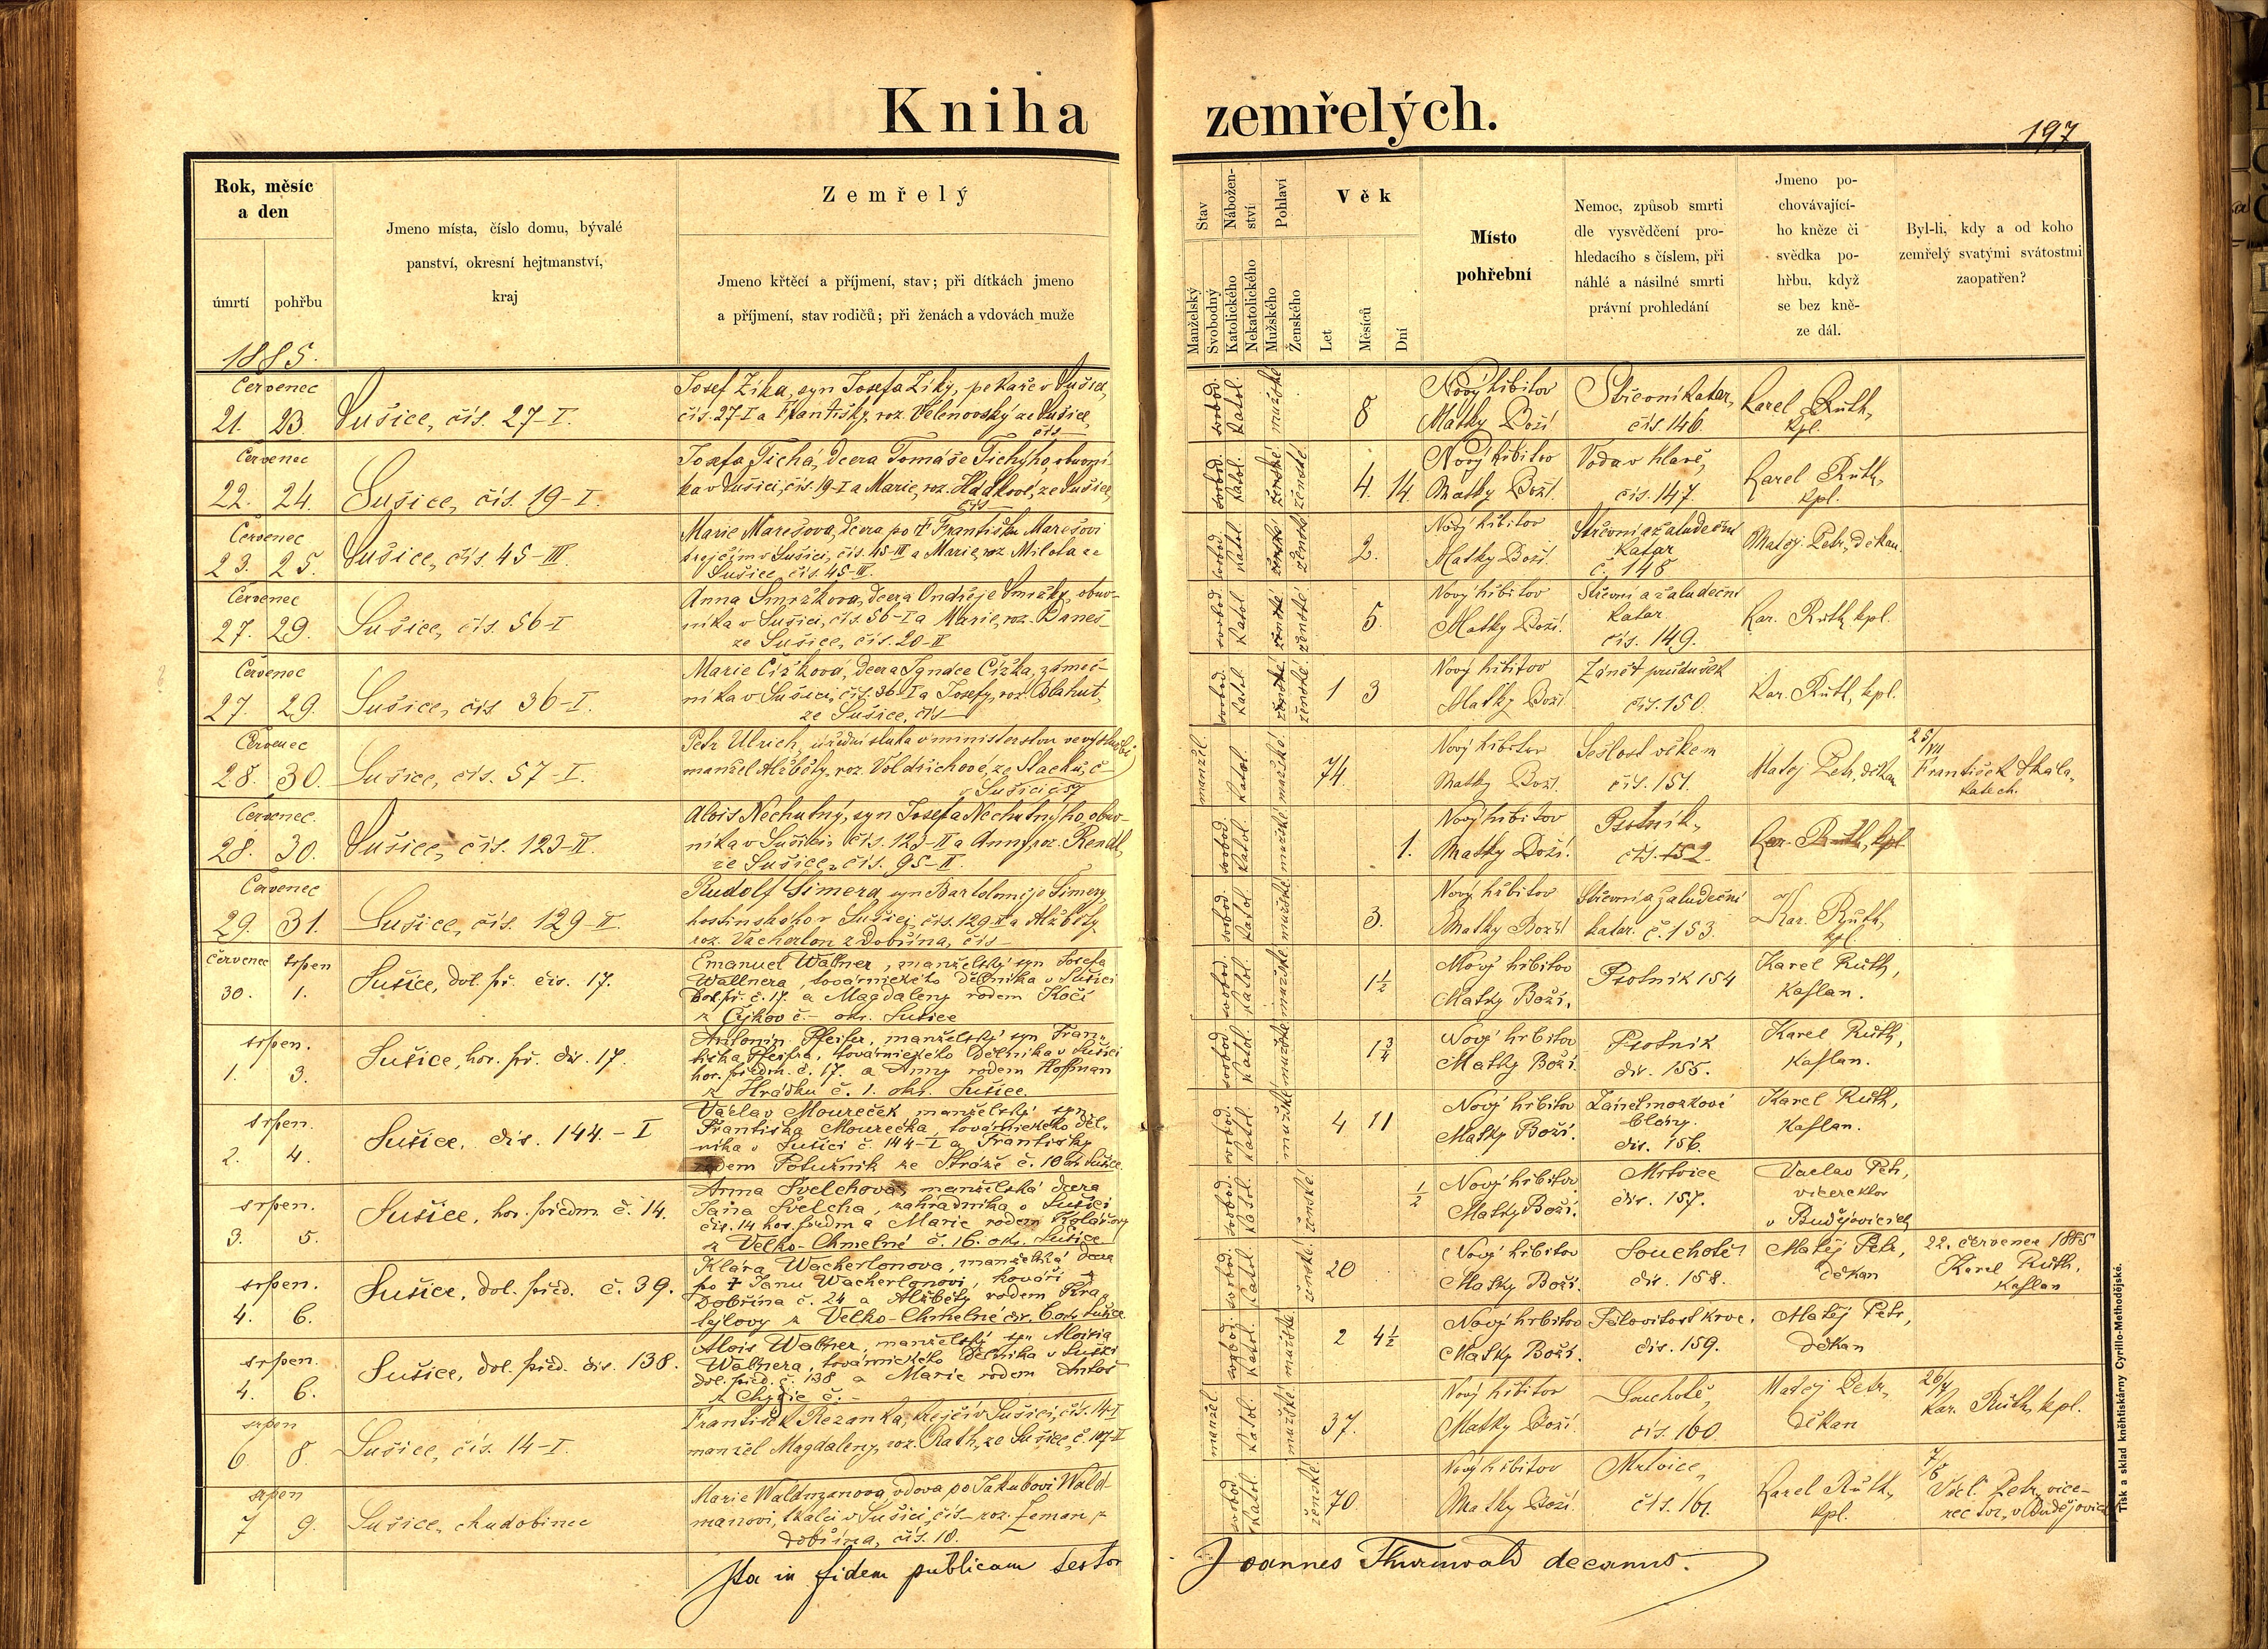 Kniha zemřelých.
197
Rok, měsíc
a den
úmrtí
pohřbu
1885.
Jmeno místa, číslo domu, bývalé
panství, okresní hejtmanství,
kraj
Zemřelý
Jmeno křtěcí a příjmení, stav; při dítkách jmeno
a příjmení, stav rodičů; při ženách a vdovách muže
Stav
Manželský
Svobodný
Nábožen-
ství
Katolického
Nekatolického
Pohlaví
Mužského
Ženského
Věk
Let
Měsíců
Dní
Místo
pohřební
Nemoc, způsob smrti
dle vysvědčení pro-
hledacího s číslem, při
náhlé a násilné smrti
právní prohledání
Jmeno po-
chovávající-
ho kněze či
svědka po-
hřbu, když
se bez kně-
ze dál.
Byl-li, kdy a od koho
zemřelý svatými svátostmi
zaopatřen?
Červenec
21. 23.
Sušice, čís. 27-I.
Josef Zíka, syn Josefa Zíky, pekaře v Sušici,
čís. 27-I a Františky, roz. Velenovský ze Sušice,
čís —
svobod. katol. mužské
8
Nový hřbitov
Matky Boží
Střevní katar,
čís 146
Karel Růth,
kpl.
Červenec
22. 24.
Sušice, čís. 19-I.
Josefa Tichá, dcera Tomáše Tichýho, obuvní-
ka v Sušici, čís. 19-I a Marie, roz. ze Sušice,
čís —
svobod. katol. ženské ženské
4. 14
Nový hřbitov
Matky Boží.
Voda v hlavě,
čís. 147.
Karel Růth,
kpl.
Červenec
23. 25.
Sušice, čís. 45-III.
Marie Marešova, dcera po † Františku Marešovi
krejčím v Sušici, čís. 45-III a Marie, roz Milota ze
Sušice, čís. 45-III.
svobod katol ženské ženské
2.
Nový hřbitov
Matky Boží.
Střevní a žaludeční
katar
č. 148
Matěj Petr, děkan.
Červenec
27. 29.
Sušice, čís. 56-I
Anna Smržkova, dcera Ondřeje Smržky, obuv-
níka v Sušici, čís. 56-I a Marie, roz. Daneš
ze Sušice, čís. 20-II
svobod. katol ženské ženské
5.
Nový hřbitov
Matky Boží.
Střevní a žaludeční
katar.
čís. 149.
Kar. Růth, kpl.
Červenec
27. 29.
Sušice, čís 36-I.
Marie Čížkova, dcera Ignace Čížka, zámeč-
níka v Sušici, čís. 36-I a Josefy, roz. Blahut,
ze Sušice, čís —
svobod. katol. ženské. ženské.
1 3
Nový hřbitov
Matky Boží
Zánět průdušek
čís. 150.
Kar. Růth, kpl.
Červenec
28. 30.
Sušice, čís. 57-I.
Petr Ulrich, úřední sluha v ministerstvu ve výslužbě
manžel Alžběty, roz. Voldřichové, ze Stachů, č-
v Sušici č 57
manžel. katol. mužské.
74.
Nový hřbitov
Matky Boží.
Sešlost věkem
čís. 151.
Matěj Petr, děkan
25/VII
František Skála,
katech.
Červenec.
28. 30.
Sušice, čís. 123-II.
Alois Nechutný, syn Josefa Nechutnýho, obuv-
níka v Sušici, čís. 123-II a Anny, roz. Rendl,
ze Sušice, čís. 95-II.
svobod. katol. mužské.
1.
Nový hřbitov
Matky Boží.
Psotník,
čís. 152.
Kar. Růth, kpl.
Červenec
29. 31.
Sušice, čís. 129-II.
Rudolf Šimera, syn Bartoloměje Šimery,
hostinského v Sušici, čís. 129-II a Alžběty,
roz. Vacherlon z Dobřína, čís —
svobod. katol. mužské.
3.
Nový hřbitov
Matky Boží
Střevní a žaludeční
katar. č. 153.
Kar. Růth,
kpl.
červenec srpen
30. 1.
Sušice, dol. př. čís. 17.
Emanuel Wallner, manželský syn Josefa
Wallnera, továrnického dělníka v Sušici
dol. př. č. 17. a Magdaleny rodem Kočí
z Čejkov č.- okr. Sušice
svobod. katol. mužské.
1½
Nový hřbitov
Matky Boží.
Psotník 154
Karel Růth,
kaplan.
srpen.
1. 3.
Sušice, hor. př. čís. 17.
Antonín Pfeifer, manželský syn Fran-
tiška Pfeifra, továrnického dělníka v Sušici
hor. předm. č. 17. a Anny rodem Hoffman
z Hrádku č. 1. okr. Sušice.
svobod. katol. mužské
1¾
Nový hrbitov
Matky Boží.
Psotník
čís. 155.
Karel Růth,
kaplan.
srpen.
2. 4.
Sušice, čís. 144.-I
Václav Moureček manželský syn
Františka Mourečka, továrnického děl-
níka v Sušici č. 144-I a Františky
rodem Potužník ze Stráže č. 10 okr. Sušice.
svobod. katol. mužské
4 11
Nový hrbitov
Matky Boží.
Zánět mozkové
blány.
čís. 156.
Karel Růth,
kaplan.
srpen.
3. 5.
Sušice, hor. předm. č. 14.
Anna Švelchova, manželská dcera
Jana Švelcha, zahradníka v Sušici
čís. 14 hor. předm a Marie rodem Kolářovy
z Velko-Chmelné č. 16. okr. Sušice
svobod. katol. ženské.
½
Nový hrbitov
Matky Boží.
Mrtvice
čís. 157.
Vaclav Petr,
vicerektor
v Budějovicích
srpen.
4. 6.
Sušice, dol. před. č. 39.
Klára Wacherlonova, manželská dcera
po † Janu Wacherlonovi, kováři z
Dobřína č. 24 a Alžběty rodem Kra-
lejlovy z Velko-Chmelné čís. 6. okr. Sušice
svobod. katol. ženské.
20
Nový hrbitov
Matky Boží.
Souchotě
čís. 158.
Matěj Petr,
děkan
22. července 1885
Karel Růth,
kaplan
srpen.
4. 6.
Sušice, dol. před. čís. 138.
Alois Wallner, manželský syn Aloisia
Wallnera, továrnického dělníka v Sušici
dol. před. č. 138 a Marie rodem Antoš
č. -
svobod. katol. mužské
2 4½
Nový hrbitov
Matky Boží.
čís. 159.
Matěj Petr,
děkan
srpen
6. 8.
Sušice, čís. 14-I.
František Řezanka, krejčí v Sušici, čís. 14-I
manžel Magdaleny, roz. Rath, ze Sušice, č. 107-II
manžel katol. mužské
37.
Nový hřbitov
Matky Boží.
Souchotě,
čís. 160.
Matěj Petr,
děkan
Kar. Růth, kpl.
srpen
7 9.
Sušice, chudobinec
Marie Waldmanova, vdova po Jakubovi Wald-
manovi, tkalci v Sušici, čís — roz. Zeman z
Dobřína, čís. 10.
svobod katol. ženské.
70.
Nový hřbitov
Matky Boží.
Mrtvice,
čís. 161.
Karel Růth,
kpl.
Václ. Petr, vice-
rector, v Budějovic
Ita in fidem publicam testor
Joannes Thurnwald decanus.
Tisk a sklad kněhtiskárny Cyrillo-Methodějské.